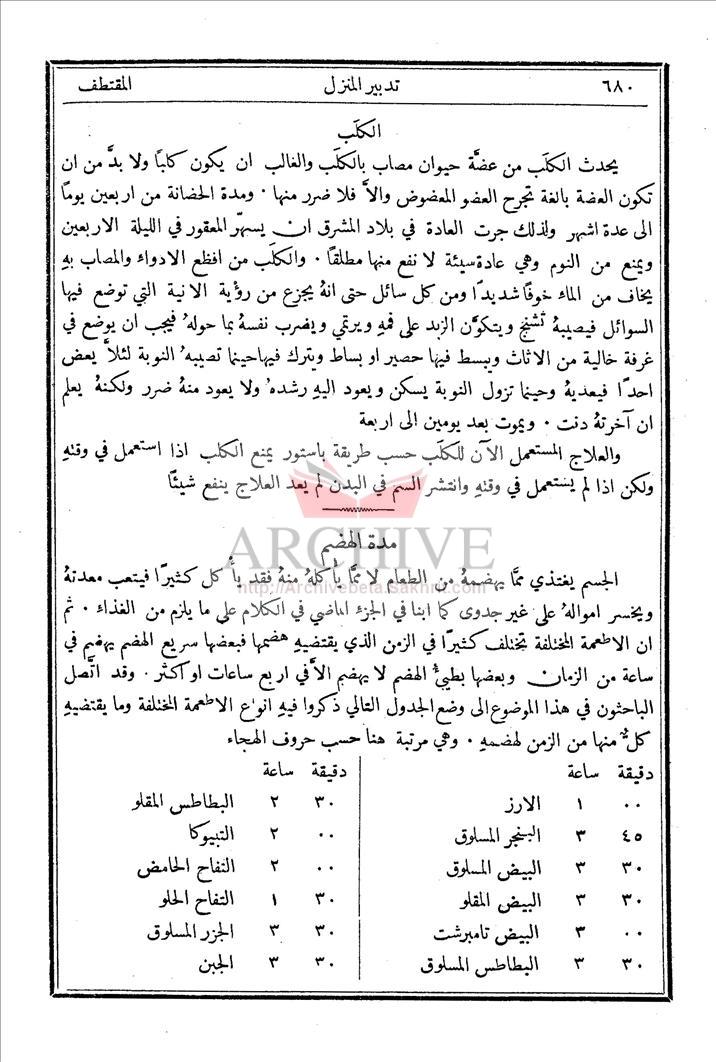 ٦٨٠ تدبير المنزل المقتطف
الكلَب
يحدث الكلَب من عضَّة حيوان مصاب بالكلَب والغالب ان يكون كلبًا ولا بدَّ من ان
تكون العضة بالغة تجرح العضو المعضوض والاَّ فلا ضرر منها . ومدة الحضانة من اربعين يومًا
الى عدة اشهر ولذلك جرت العادة في بلاد المشرق ان يسهَّر المعقور في الليلة الاربعين
ويمنع من النوم وهي عادة سيئة لا نفع منها مطلقًا . والكلَب من افظع الادواء والمصاب بهِ
يخاف من الماء خوفًا شديدًا ومن كل سائل حتى انهُ يجزع من رؤية الانية التي توضع فيها
السوائل فيصيبهُ تشنج ويتكوَّن الزبد على فمهِ ويرتمي ويضرب نفسهُ بما حولهُ فيجب ان يوضع في
غرفة خالية من الاثاث ويبسط فيها حصير او بساط ويترك فيها حينما تصيبهُ النوبة لئلاَّ يعض
احدًا فيعديهُ وحينما تزول النوبة يسكن ويعود اليهِ رشدهُ ولا يعود منهُ ضرر ولكنهُ يعلم
ان آخرتهُ دنت . ويموت بعد يومين الى اربعة
والعلاج المستعمل الآن للكلَب حسب طريقة باستور يمنع الكلب اذا استعمل في وقتهِ
ولكن اذا لم يستعمل في وقتهِ وانتشر السم في البدن لم يعد العلاج ينفع شيئًا
مدة الهضم
ARCHIVE
http://Archivebeta.Sakhrit.com
الجسم يغتذي ممَّا يهضمهُ من الطعام لا ممَّا يأكلهُ منهُ فقد يأكل كثيرًا فيتعب معدتهُ
ويخسر اموالهُ على غير جدوى كما ابنا في الجزء الماضي في الكلام على ما يلزم من الغذاء . ثم
ان الاطعمة المختلفة تختلف كثيرًا في الزمن الذي يقتضيهِ هضمها فبعضها سريع الهضم يهضم في
ساعة من الزمان وبعضها بطيئُ الهضم لا يهضم الاَّ في اربع ساعات او اكثر . وقد اتَّصل
الباحثون في هذا الموضوع الى وضع الجدول التالي ذكروا فيهِ انواع الاطعمة المختلفة وما يقتضيهِ
كلٌّ منها من الزمن لهضمهِ . وهي مرتبة هنا حسب حروف الهجاء
دقيقة ساعة دقيقة ساعة
٠٠ ١ الارز ٣٠ ٢ البطاطس المقلو
٤٥ ٣ البنجر المسلوق ٠٠ ٢ التبيوكا
٣٠ ٣ البيض المسلوق ٠٠ ٢ التفاح الحامض
٣٠ ٣ البيض المقلو ٣٠ ١ التفاح الحلو
٠٠ ٣ البيض تامبرشت ٣٠ ٣ الجزر المسلوق
٣٠ ٣ البطاطس المسلوق ٣٠ ٣ الجبن